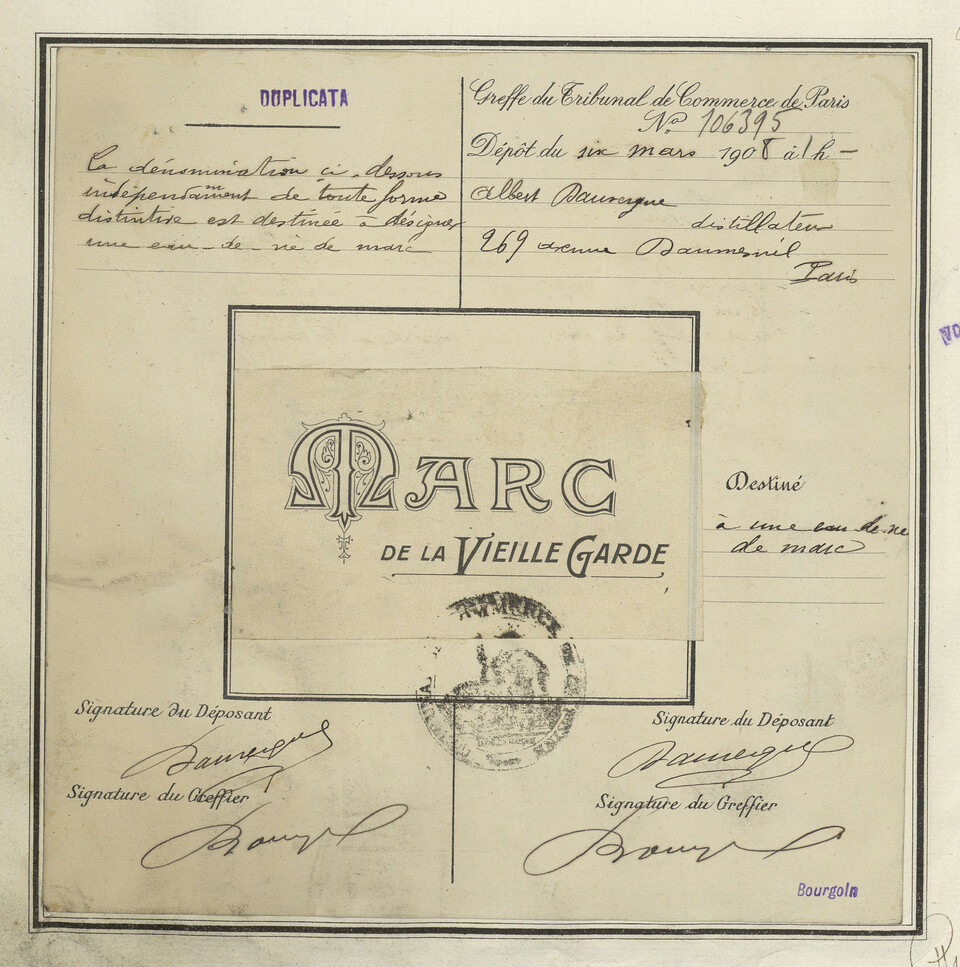 DUPLICATA
La dénomination ci-dessous
indépendamment de toute forme
distinctive est destinée à désigner
une eau-de-vie de marc
Greffe du Tribunal de Commerce de Paris
No 106395
Dépôt du six mars 1908 à 1 h -
Albert Dauvergne
distillateur
269 avenue Daumesnil
Paris
MARC
DE LA VIEILLE GARDE
Destiné
à une eau de vie
de marc
Signature du Déposant
Dauvergne
Signature du Greffier
Signature du Déposant
Dauvergne
Signature du Greffier
Bourgoin